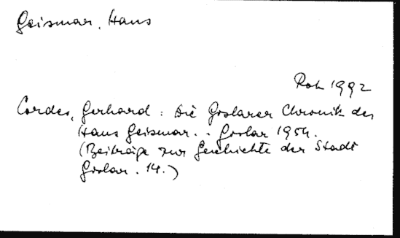 Geismar, Hans
Roh 1992
Cordes, Gerhard: Die Goslarer Chronik des
Hans Geismar. . Goslar 1954.
(Beiträge zur Geschichte der Stadt
Goslar. 14.)